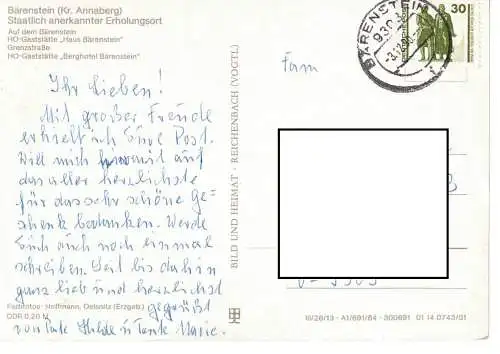 Bärenstein (Kr. Annaberg)
Staatlich anerkannter Erholungsort
Auf dem Bärenstein
HO-Gaststätte „Haus Bärenstein"
Grenzstraße
HO-Gaststätte „Berghotel Bärenstein"
Ihr Lieben!
Mit großer Freude
erhielt ich Eure Post.
Will mich hiermit auf
das aller herzlichste
für das sehr schöne Ge-
schenk bedanken. Werde
Euch auch noch einmal
schreiben. Seit bis dahin
ganz lieb und herzlichst
gegrüßt
von Tante Hilde u Tante Marie.
Farbfotos: Hoffmann, Oelsnitz (Erzgeb)
DDR 0,20 M
BILD UND HEIMAT · REICHENBACH (VOGTL)
BÄRENSTEIN
930
30
Fam
III/26/13 · A1/691/84 · 300691 01 14 0743/01